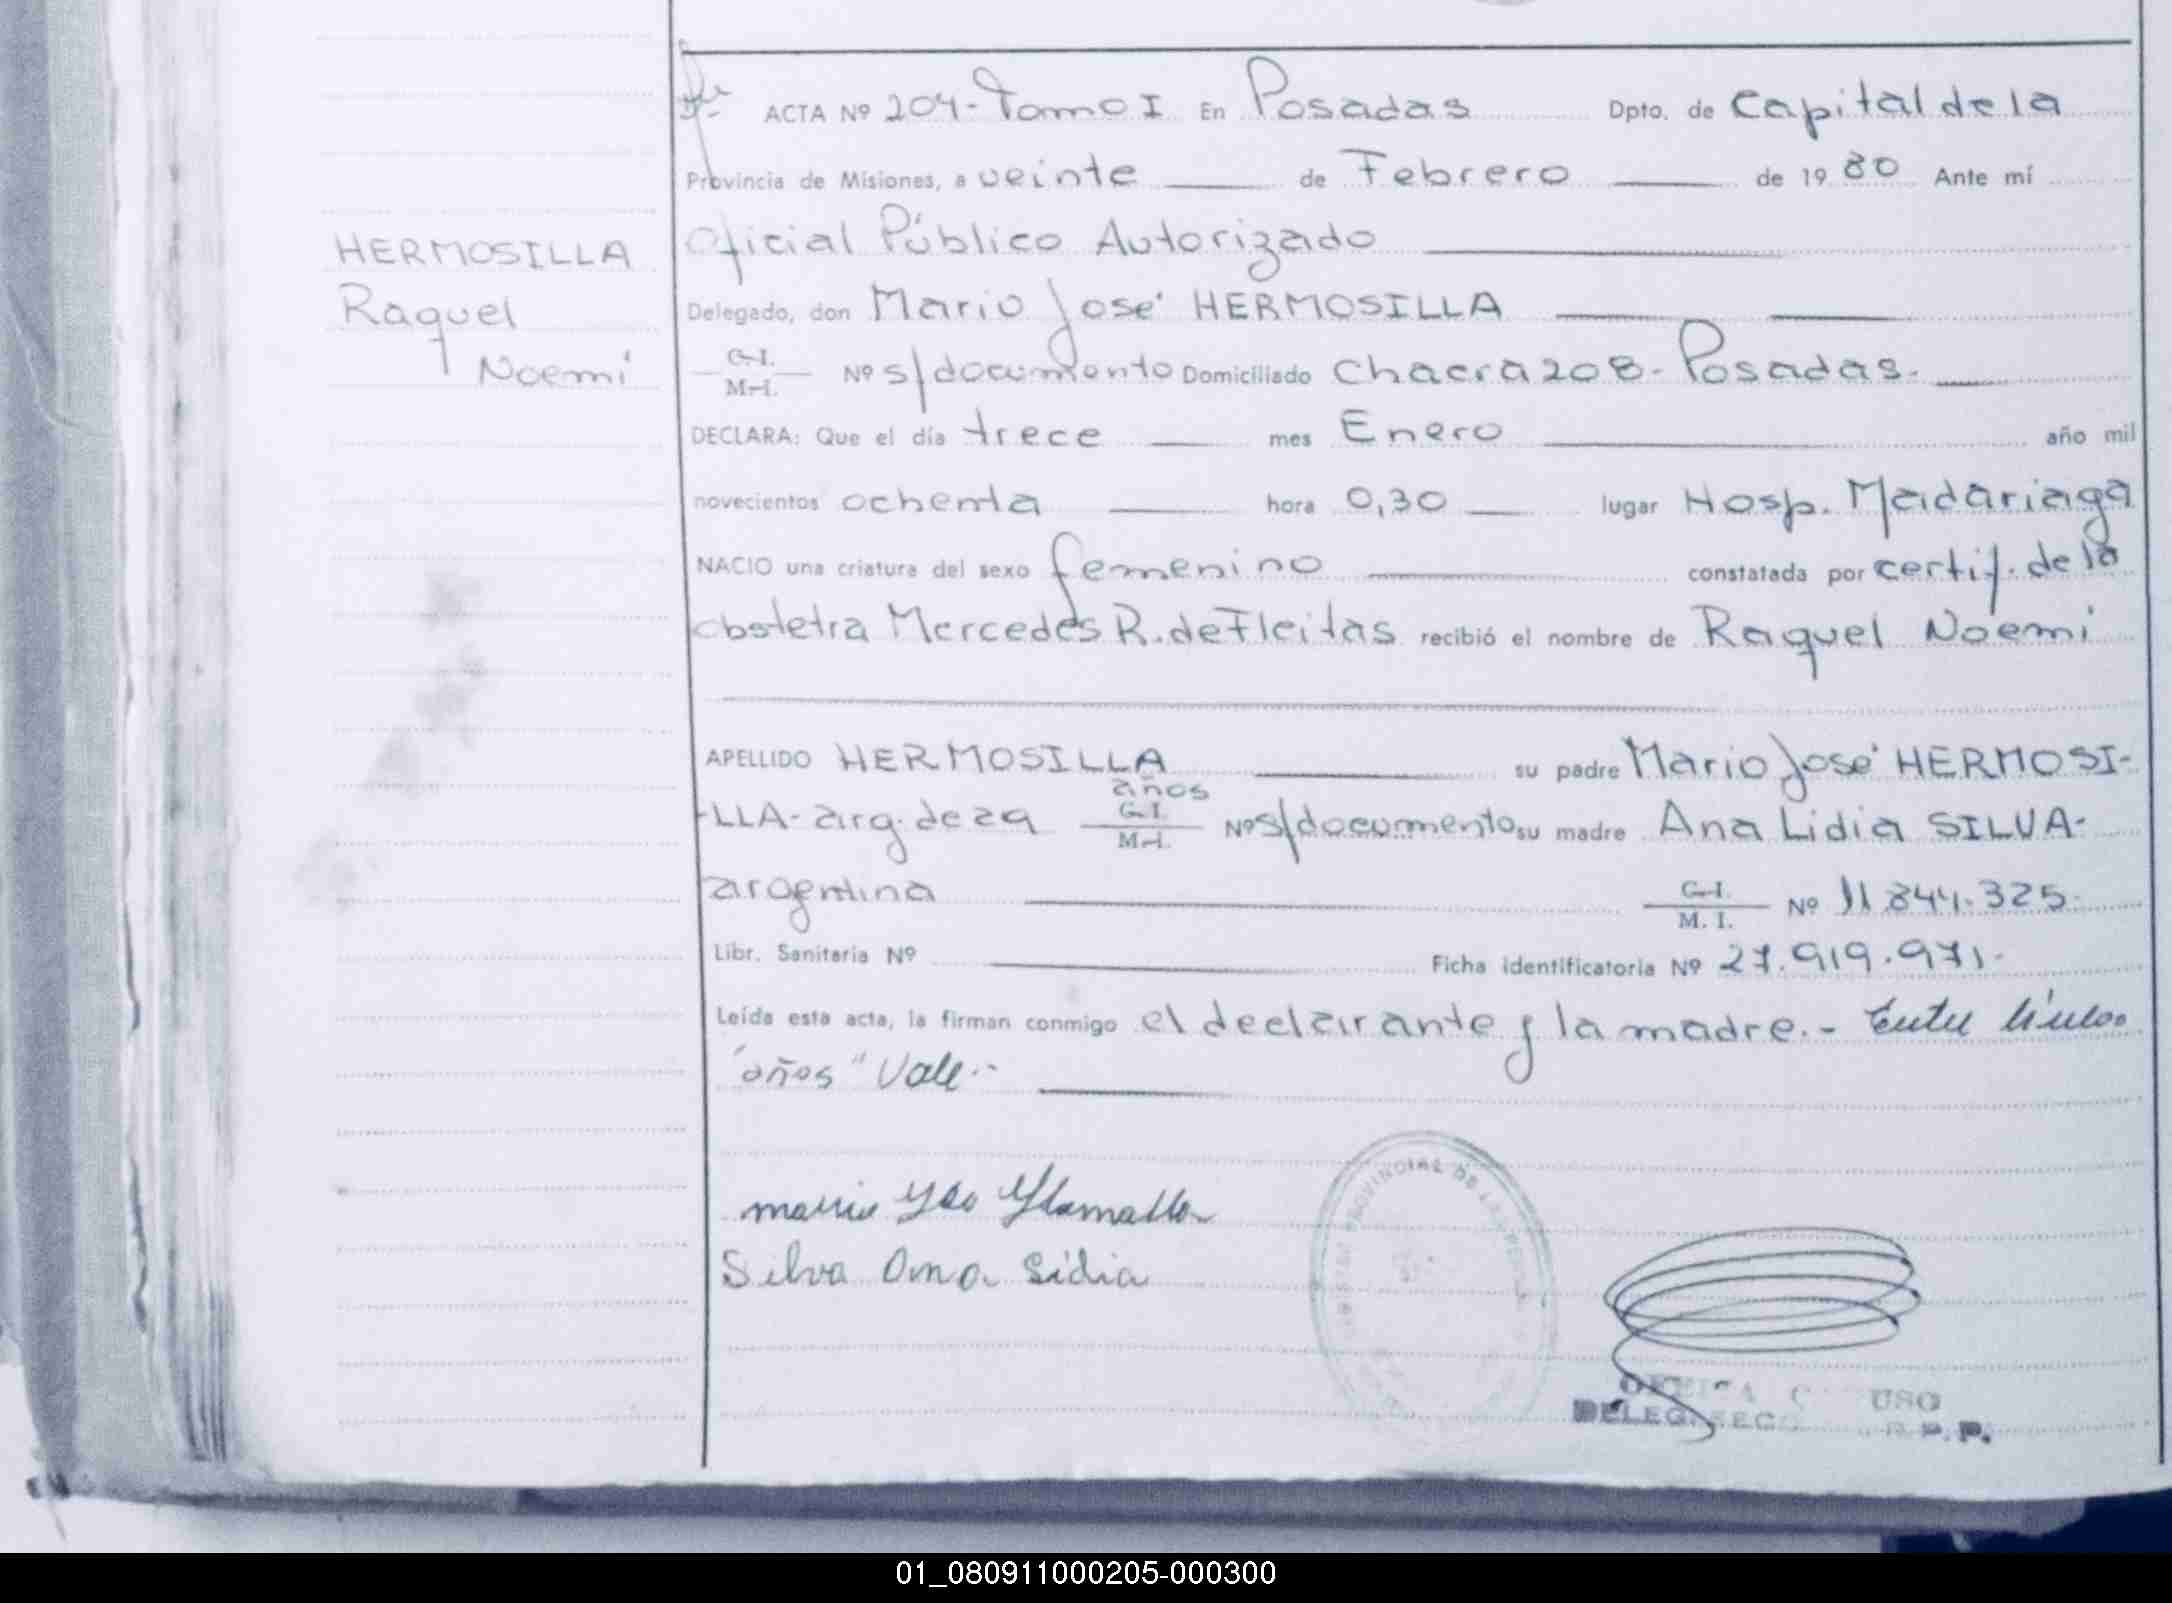 ACTA Nº 204- Tomo I En Posadas Dpto. de Capital de la
Provincia de Misiones, a veinte de Febrero de 1980 Ante mí
Oficial Público Autorizado
HERMOSILLA
Raquel
Noemi
Delegado, don Mario José HERMOSILLA
C.I. M.I. Nº s/documento Domiciliado Chacra 208- Posadas.
DECLARA: Que el día trece mes Enero año mil
novecientos ochenta hora 0,30 lugar Hosp. Madariaga
NACIO una criatura del sexo femenino constatada por certif. de la
obstetra Mercedes R. de Fleitas recibió el nombre de Raquel Noemi
APELLIDO HERMOSILLA su padre Mario José HERMOSI-
años
-LLA- arg. de 29 C.I. M.I. Nº s/documento su madre Ana Lidia SILVA-
argentina C.I. M.I. Nº 11.844.325.
Libr. Sanitaria Nº Ficha identificatoria Nº 27.919.971.
Leída esta acta, la firman conmigo el declarante y la madre.- Entre líneas
"años" Vale.-
Silva Ana Lidia
PROVINCIAL DE LAS
DELEG. SECC
P.P.
01_080911000205-000300